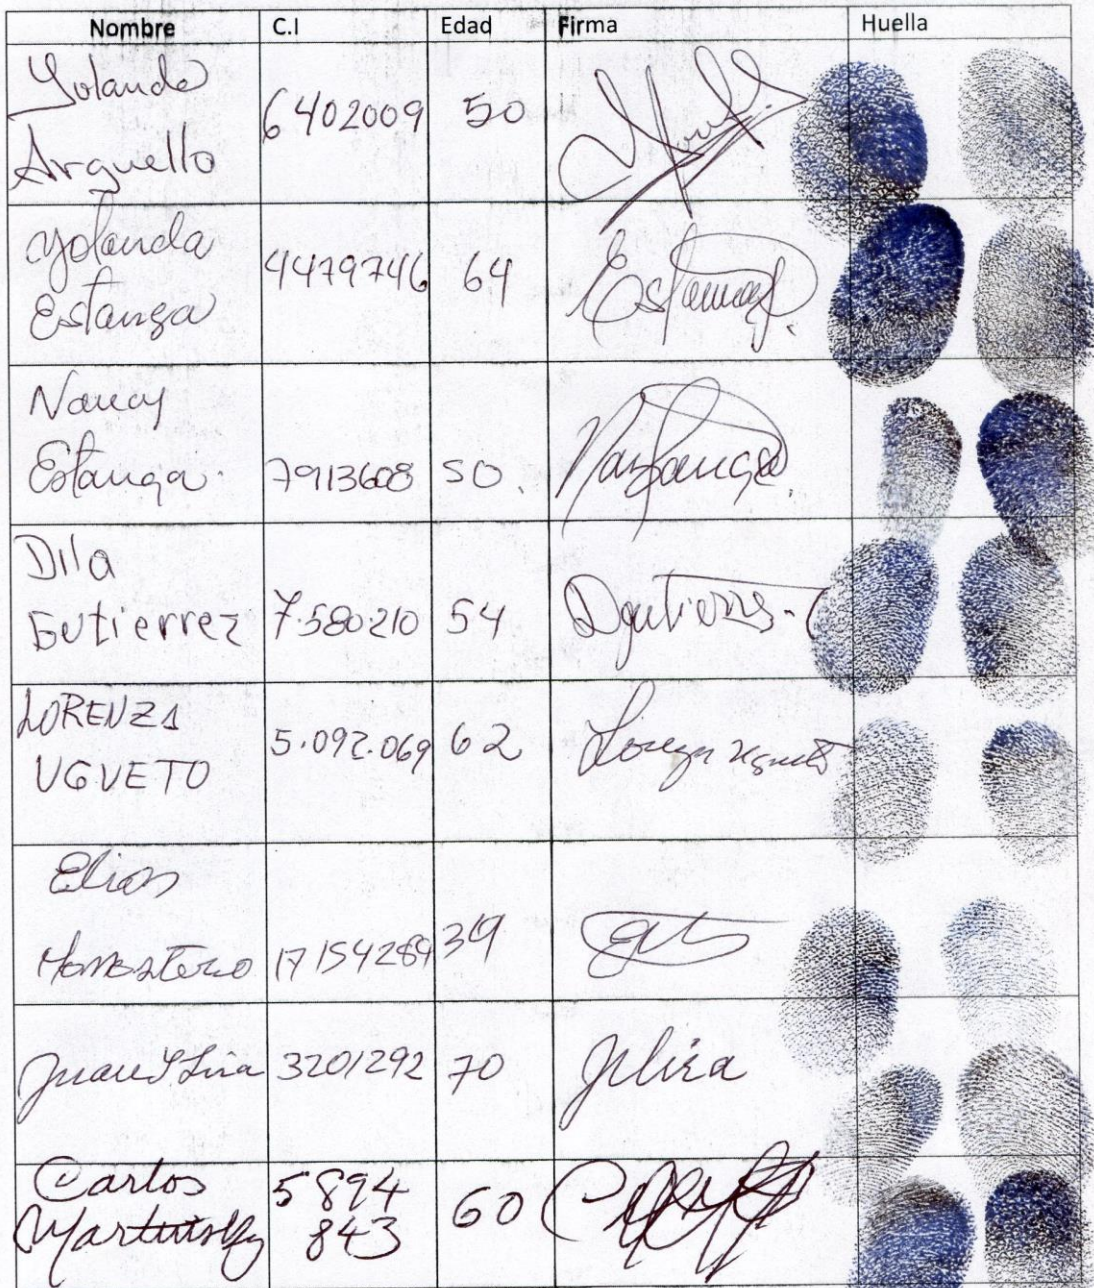 Nombre C.I Edad Firma Huella
Yolanda
Arguello
6402009 50
Yolanda
Estanga
4479746 64
Nancy
Estanga.
7913608 50.
Dila
Gutierrez 7.580.210 54 Dgutierrez
LORENZA
UGUETO
5.092.069 62 Lorenza Ugueto
Elias
Monasterio 17154284
Juan Lira 3201292 70 Jlira
Carlos
5894
843
60